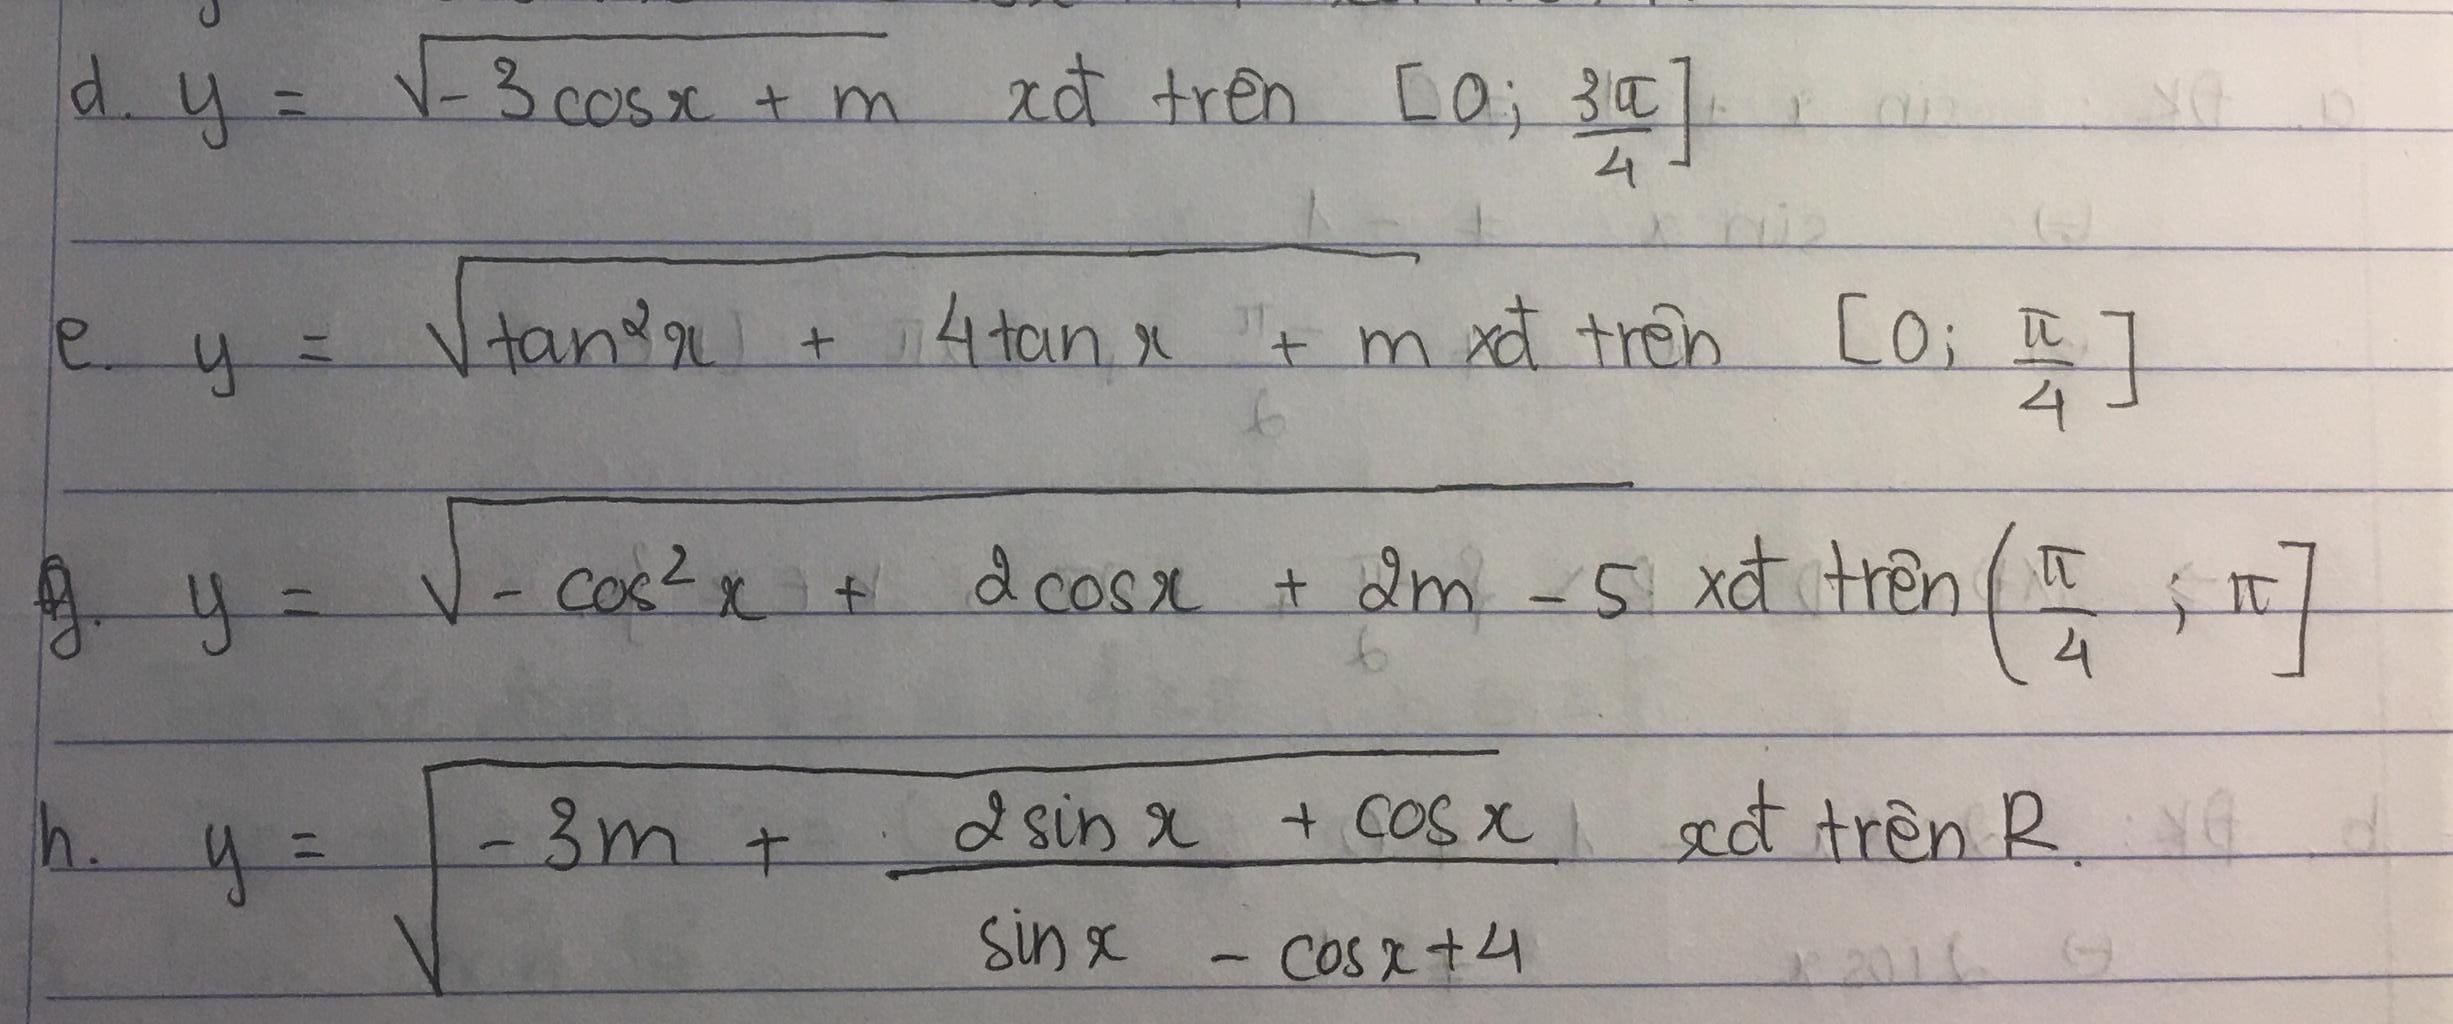 d. y = √(-3cosx + m) xđ trên [0; 3π/4]
e. y = √(tan²x + 4tan x + m) xđ trên [0; π/4]
g. y = √(-cos²x + 2cosx + 2m - 5) xđ trên (π/4 ; π]
h. y = √(-3m + (2sin x + cos x)/(sin x - cos x + 4)) xđ trên R.